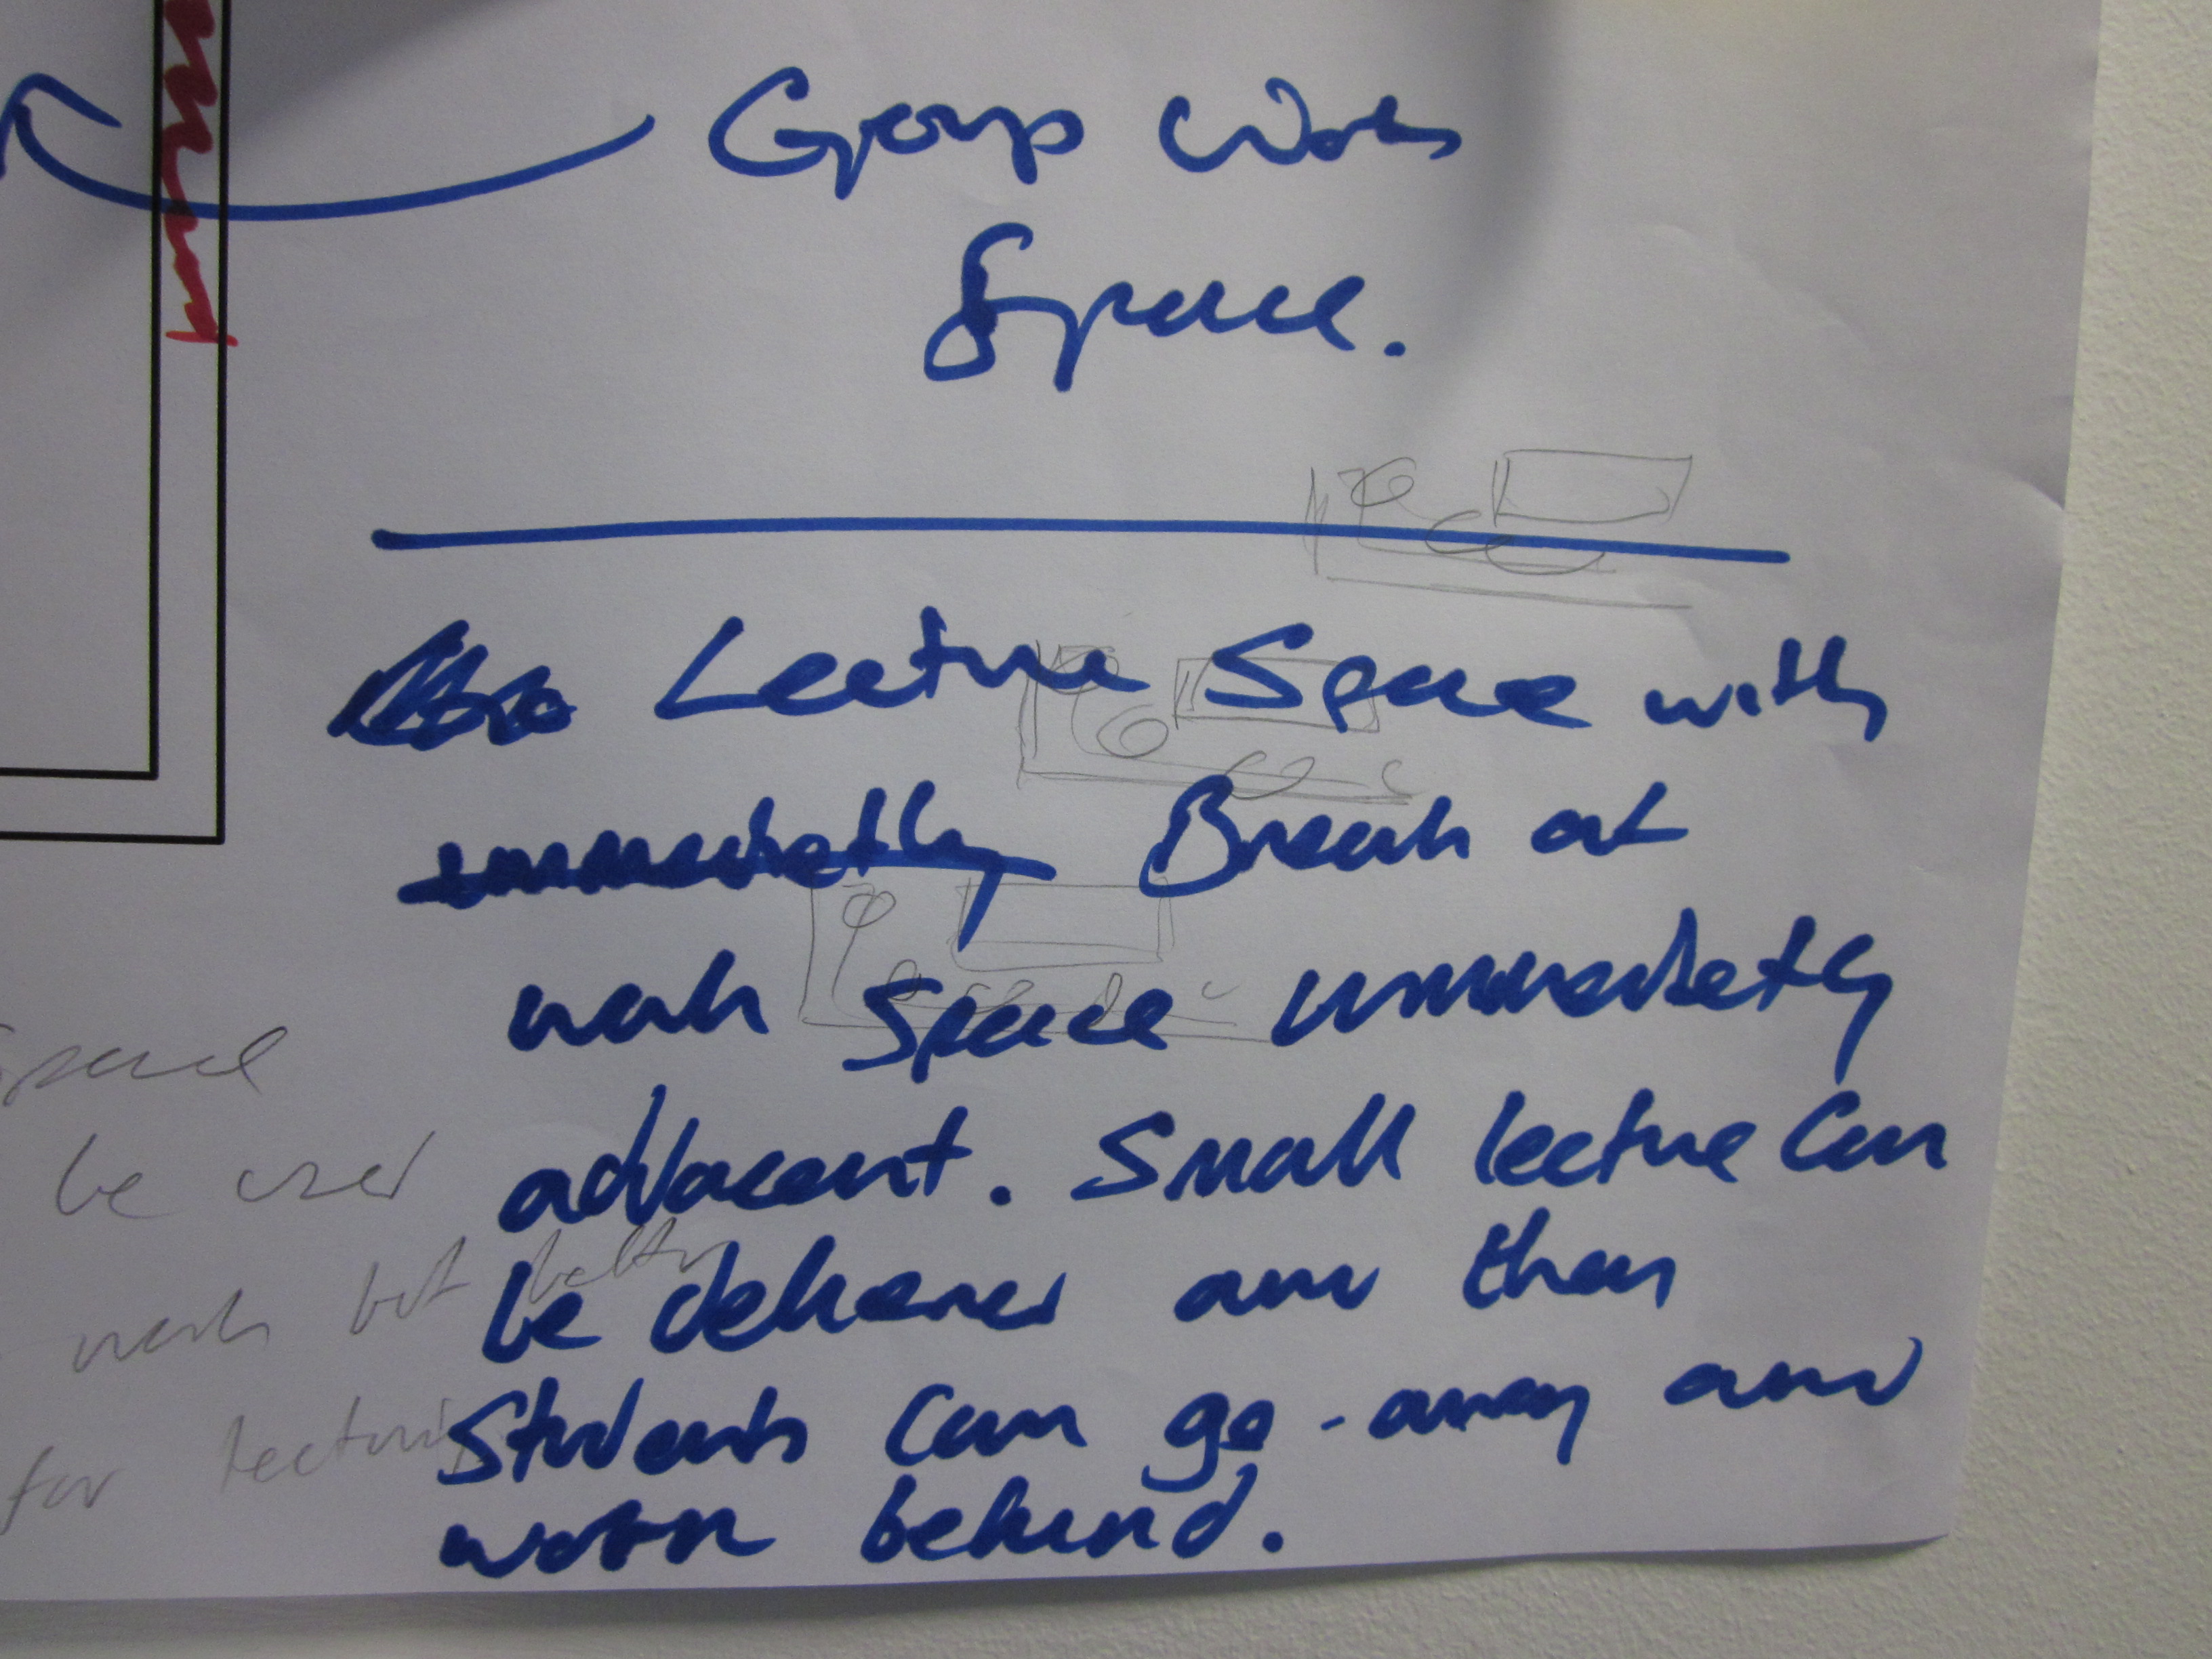 Group Work
Space.
Lecture Space with
immediatly Break out
work Space immediatly
adjacent. Small lecture Can
be delivered and then
Students Can go-away and
work behind.
Space
be used
work but better
for lecturing